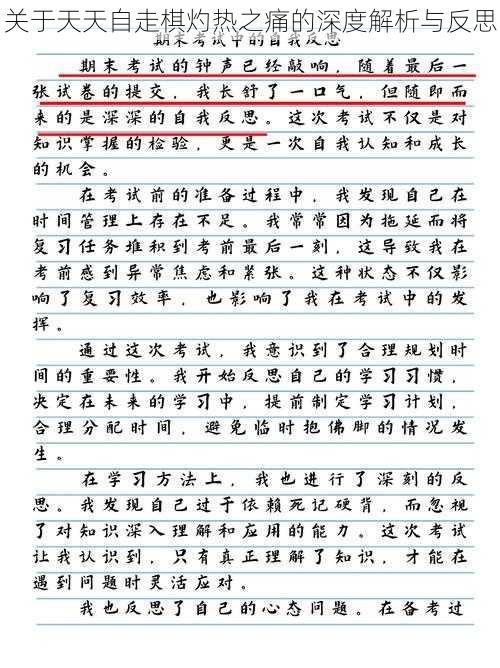 关于天天自走棋灼热之痛的深度解析与反思
期末考试中的自我反思
期末考试的钟声已经敲响，随着最后一
张试卷的提交，我长舒了一口气，但随即而
来的是深深的自我反思。这次考试不仅是对
知识掌握的检验，更是一次自我认知和成长
的机会。
在考试前的准备过程中，我发现自己在
时间管理上存在不足。我常常因为拖延而将
复习任务堆积到考前最后一刻，这导致我在
考前感到异常焦虑和紧张。这种状态不仅影
响了复习效率，也影响了我在考试中的发
挥。
通过这次考试，我意识到了合理规划时
间的重要性。我开始反思自己的学习习惯，
决定在未来的学习中，提前制定学习计划，
合理分配时间，避免临时抱佛脚的情况发
生。
在学习方法上，我也进行了深刻的反
思。我发现自己过于依赖死记硬背，而忽视
了对知识深入理解和应用的能力。这次考试
让我认识到，只有真正理解了知识，才能在
遇到问题时灵活应对。
我也反思了自己的心态问题。在备考过